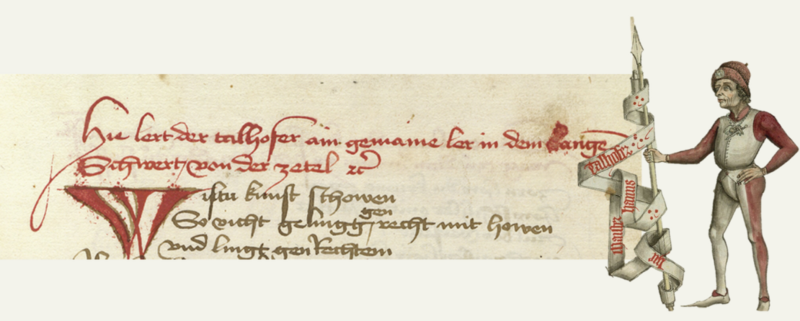 Hie lert der talhofer ain gemaine ler in dem Langen
Schwert von der zetel
Wiltu kunst schowen
So vicht gelingg gen recht mit howen
vnd lingk gen Rechten
talhofer
hanns
maister